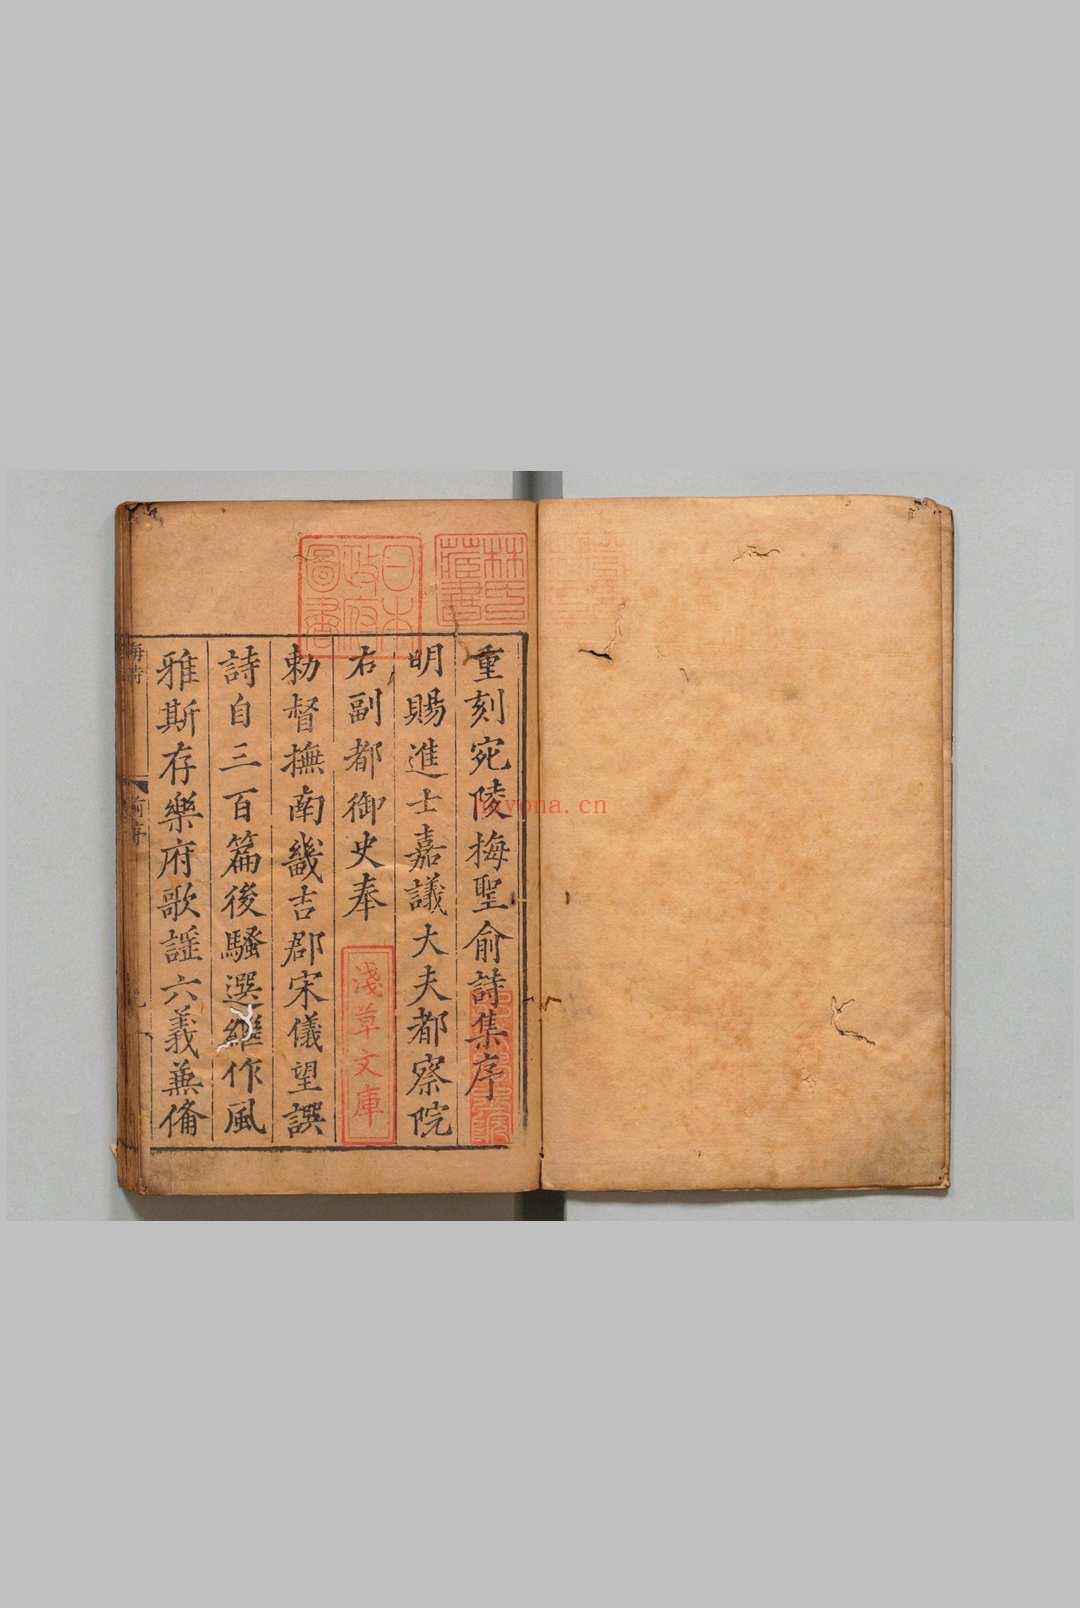 重刻宛陵梅聖俞詩集序
明賜進士嘉議大夫都察院
右副都御史奉
勅督撫南畿吉郡宋儀望譔
詩自三百篇後騷選繼作風
雅斯存樂府歌謡六義兼俻
林氏
藏書
日本
政府
圖書
淺草文庫
huyona.cn